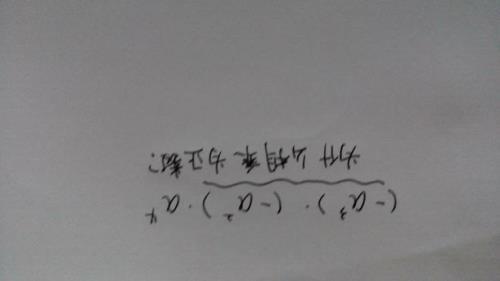 (-a³)·(-a²)·a⁴
为什么相乘为正数?